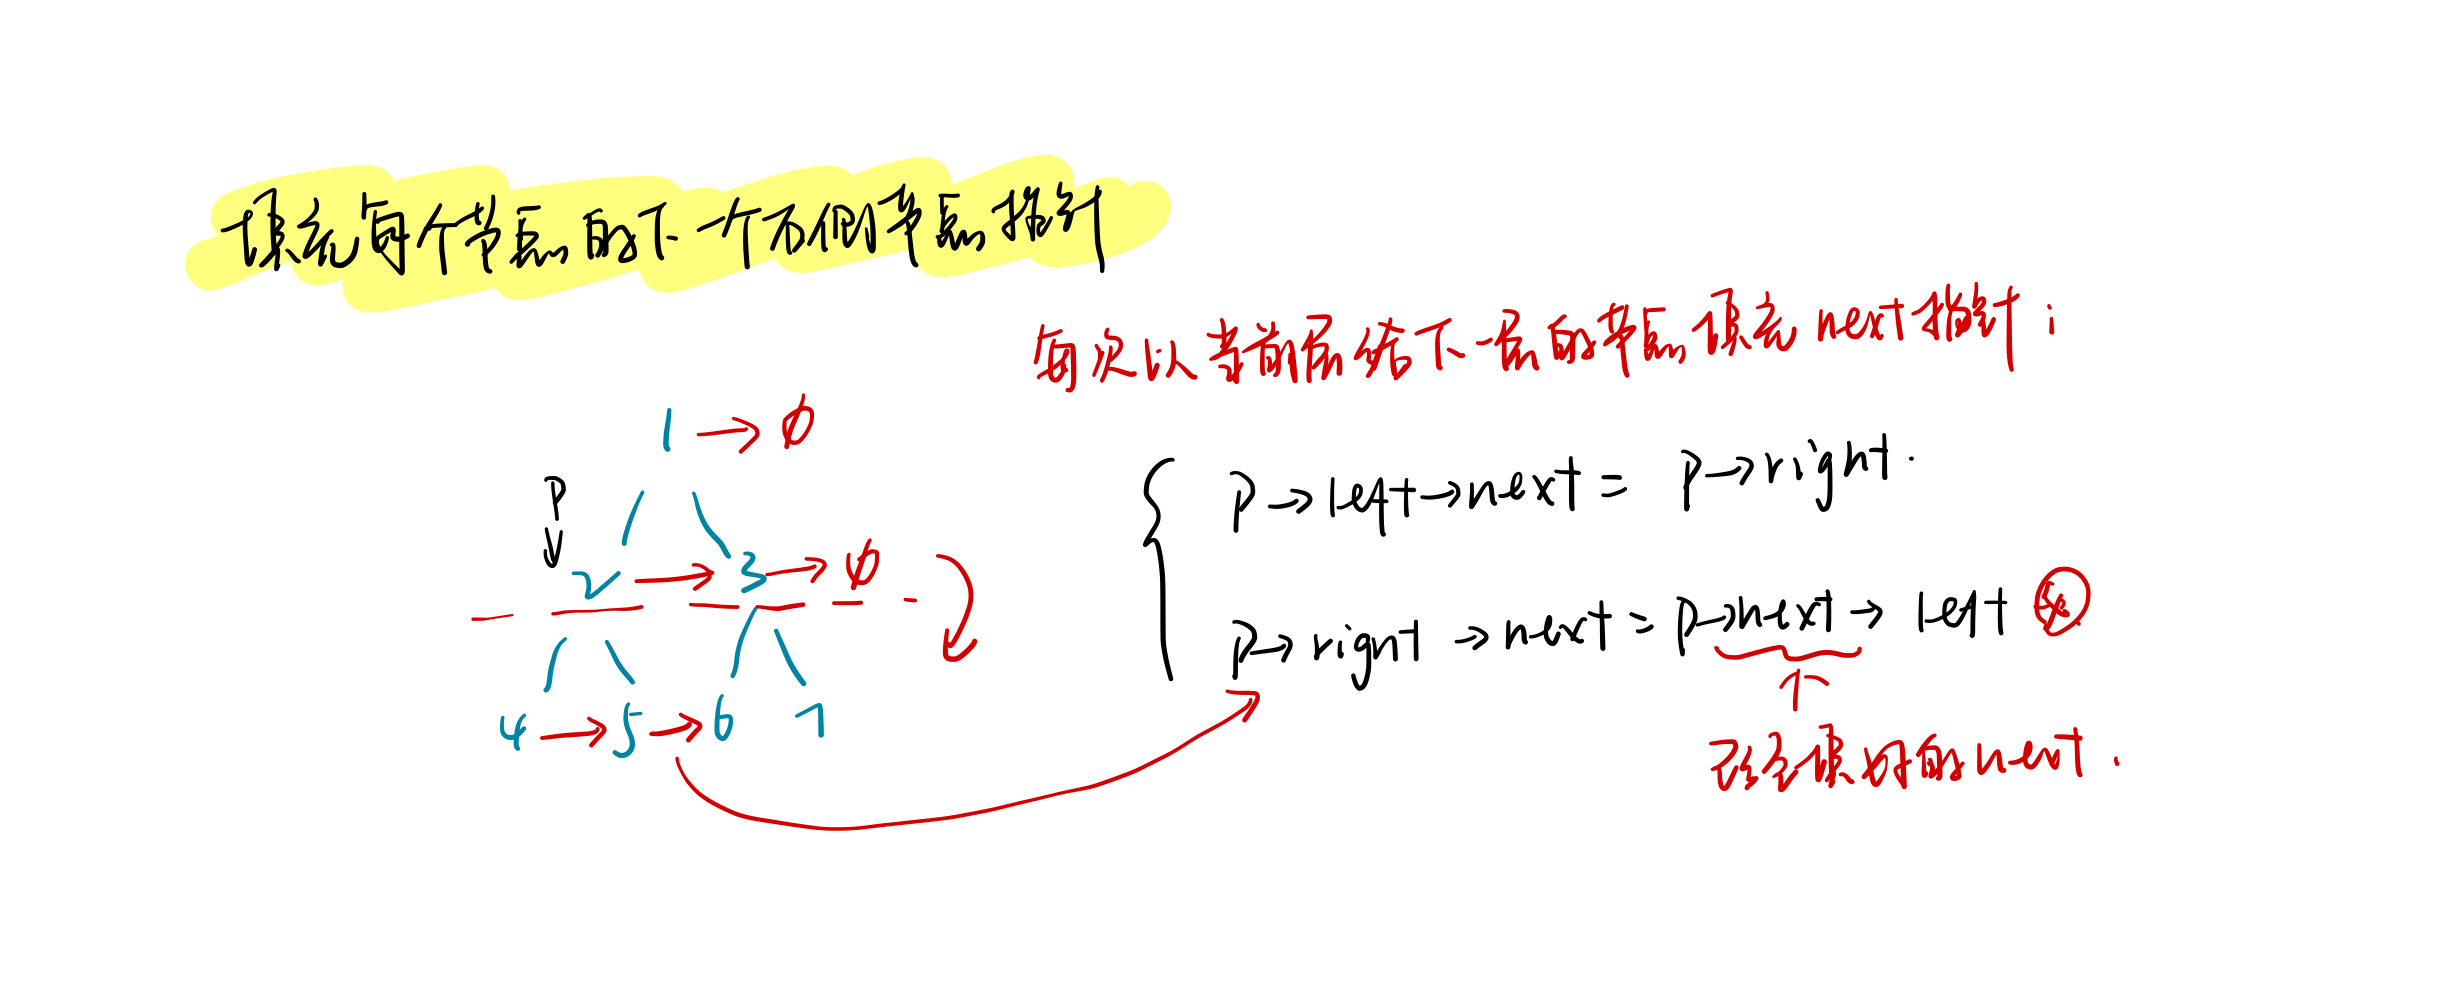 填充每个节点的下一个右侧节点指针
每次以当前层给下一层的节点填充next指针;
1 → ∅
P
2 → 3 → ∅
4 → 5 → 6 7
p→left→next = p→right.
p→right→next = p→next→left
已经填好的next.